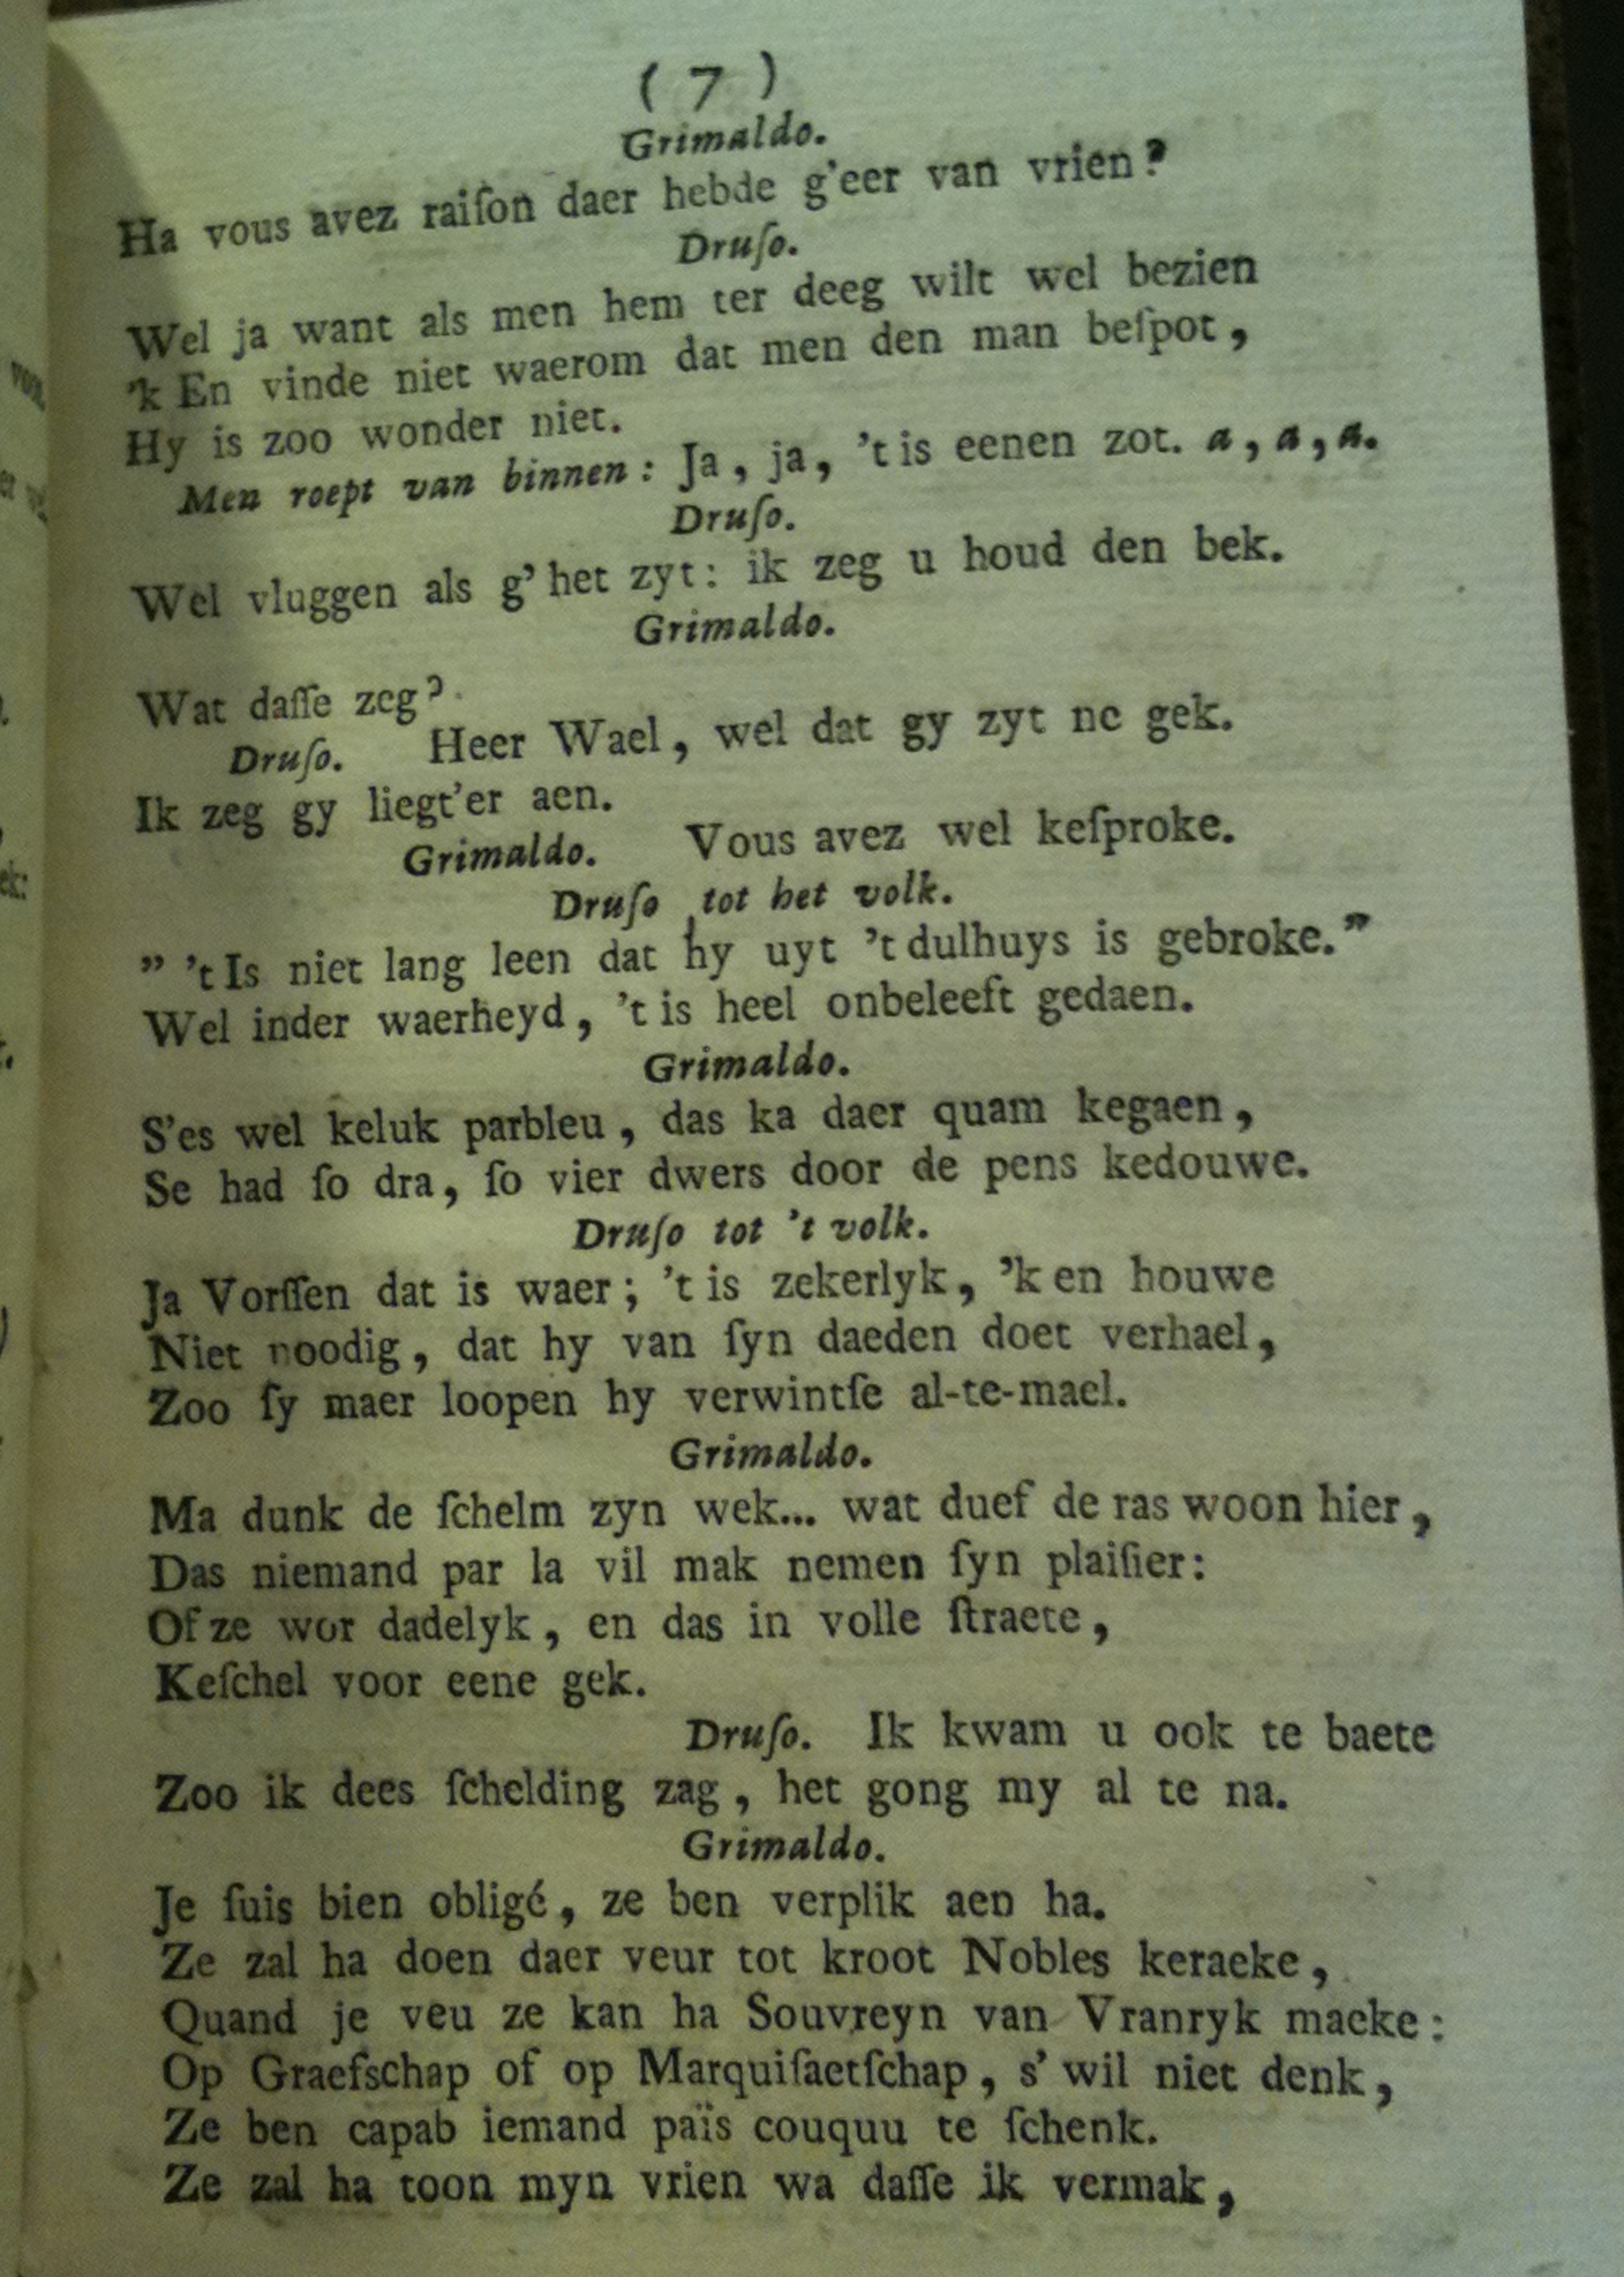 ( 7 )
Grimaldo.
Ha vous avez raiſon daer hebde g'eer van vrien?
Druſo.
Wel ja want als men hem ter deeg wilt wel bezien
'k En vinde niet waerom dat men den man beſpot,
Hy is zoo wonder niet.
Men roept van binnen: Ja, ja, 't is eenen zot. a, a, a.
Druſo.
Wel vluggen als g' het zyt: ik zeg u houd den bek.
Grimaldo.
Wat daſſe zeg?
Druſo. Heer Wael, wel dat gy zyt ne gek.
Ik zeg gy liegt'er aen.
Grimaldo. Vous avez wel keſproke.
Druſo tot het volk.
" 't Is niet lang leen dat hy uyt 't dulhuys is gebroke."
Wel inder waerheyd, 't is heel onbeleeft gedaen.
Grimaldo.
S'es wel keluk parbleu, das ka daer quam kegaen,
Se had ſo dra, ſo vier dwers door de pens kedouwe.
Druſo tot 't volk.
Ja Vorſſen dat is waer; 't is zekerlyk, 'k en houwe
Niet noodig, dat hy van ſyn daeden doet verhael,
Zoo ſy maer loopen hy verwintſe al-te-mael.
Grimaldo.
Ma dunk de ſchelm zyn wek... wat duef de ras woon hier,
Das niemand par la vil mak nemen ſyn plaiſier:
Of ze wor dadelyk, en das in volle ſtraete,
Keſchel voor eene gek.
Druſo. Ik kwam u ook te baete
Zoo ik dees ſchelding zag, het gong my al te na.
Grimaldo.
Je ſuis bien obligé, ze ben verplik aen ha.
Ze zal ha doen daer veur tot kroot Nobles keraeke,
Quand je veu ze kan ha Souvreyn van Vranryk maeke:
Op Graefschap of op Marquiſaetſchap, s' wil niet denk,
Ze ben capab iemand païs couquu te ſchenk.
Ze zal ha toon myn vrien wa daſſe ik vermak,